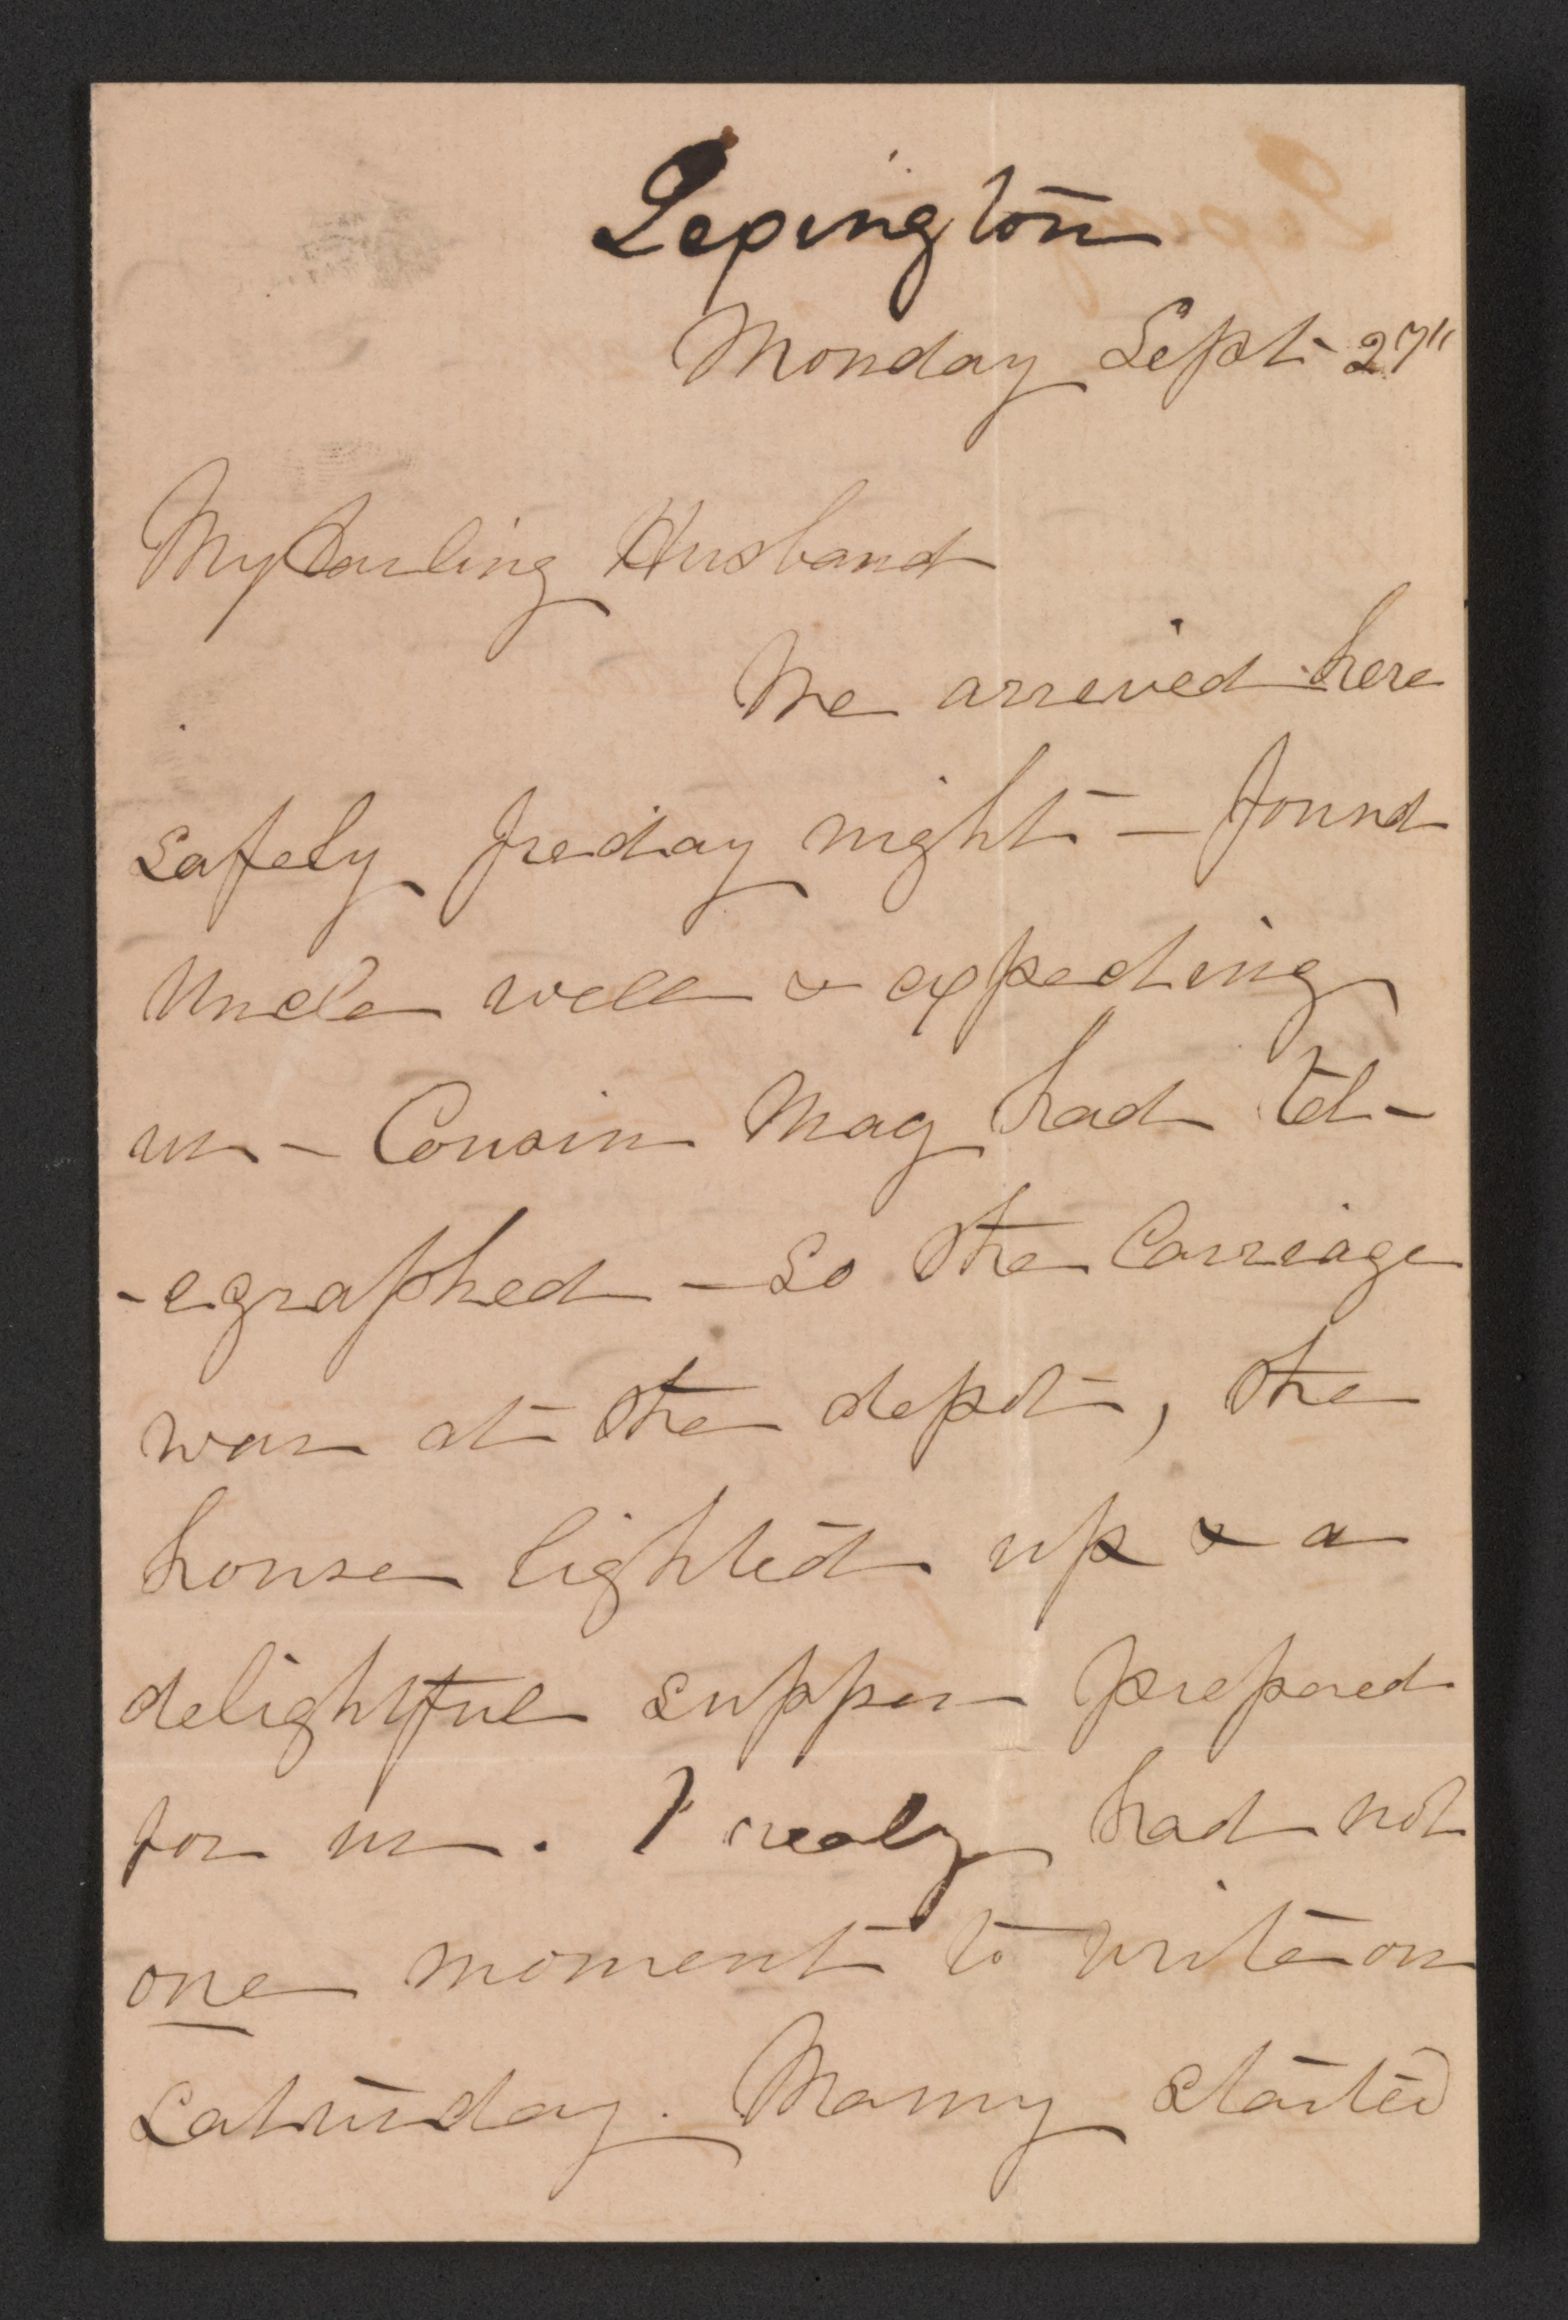 Lexington
Monday Sept- 27"
My Darling Husband
We arrived here
safely Friday night - found
Uncle well & expecting
us - Cousin Mag had tel-
-egraphed - so the Carriage
was at the depot, the
house lighted up & a
delightful supper prepared
for us. I realy had not
one moment to write on
Saturday. Mamy started